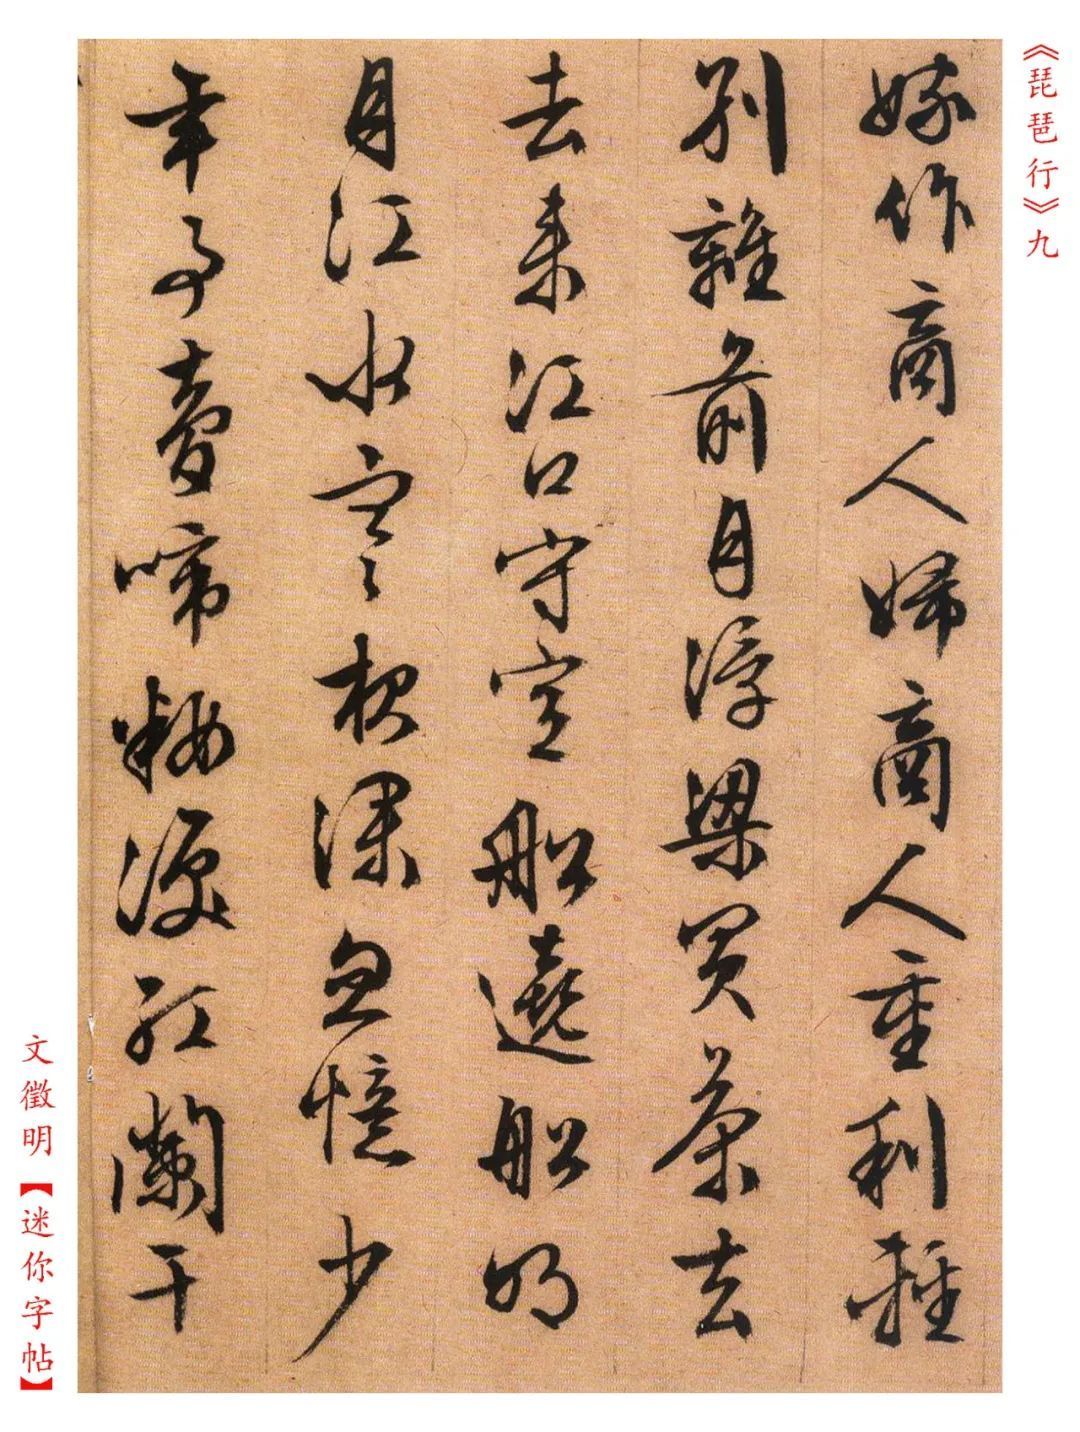 《琵琶行》九
嫁作商人婦商人重利輕
別離前月浮梁買茶去
去來江口守空船遶船明
月江水寒夜深忽憶少
年事夢啼粧淚紅闌干
文徵明【迷你字帖】